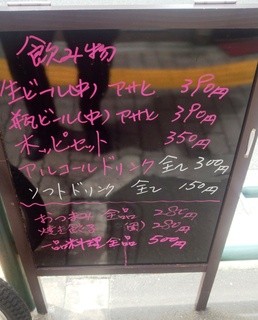 飲み物
生ビール(中) アサヒ 390円
瓶ビール(中) アサヒ 390円
ホッピセット 350円
アルコールドリンク 全て 300円
ソフトドリンク 全て 150円
おつまみ 全品 280円
焼き 280円
一品料理 全品 500円